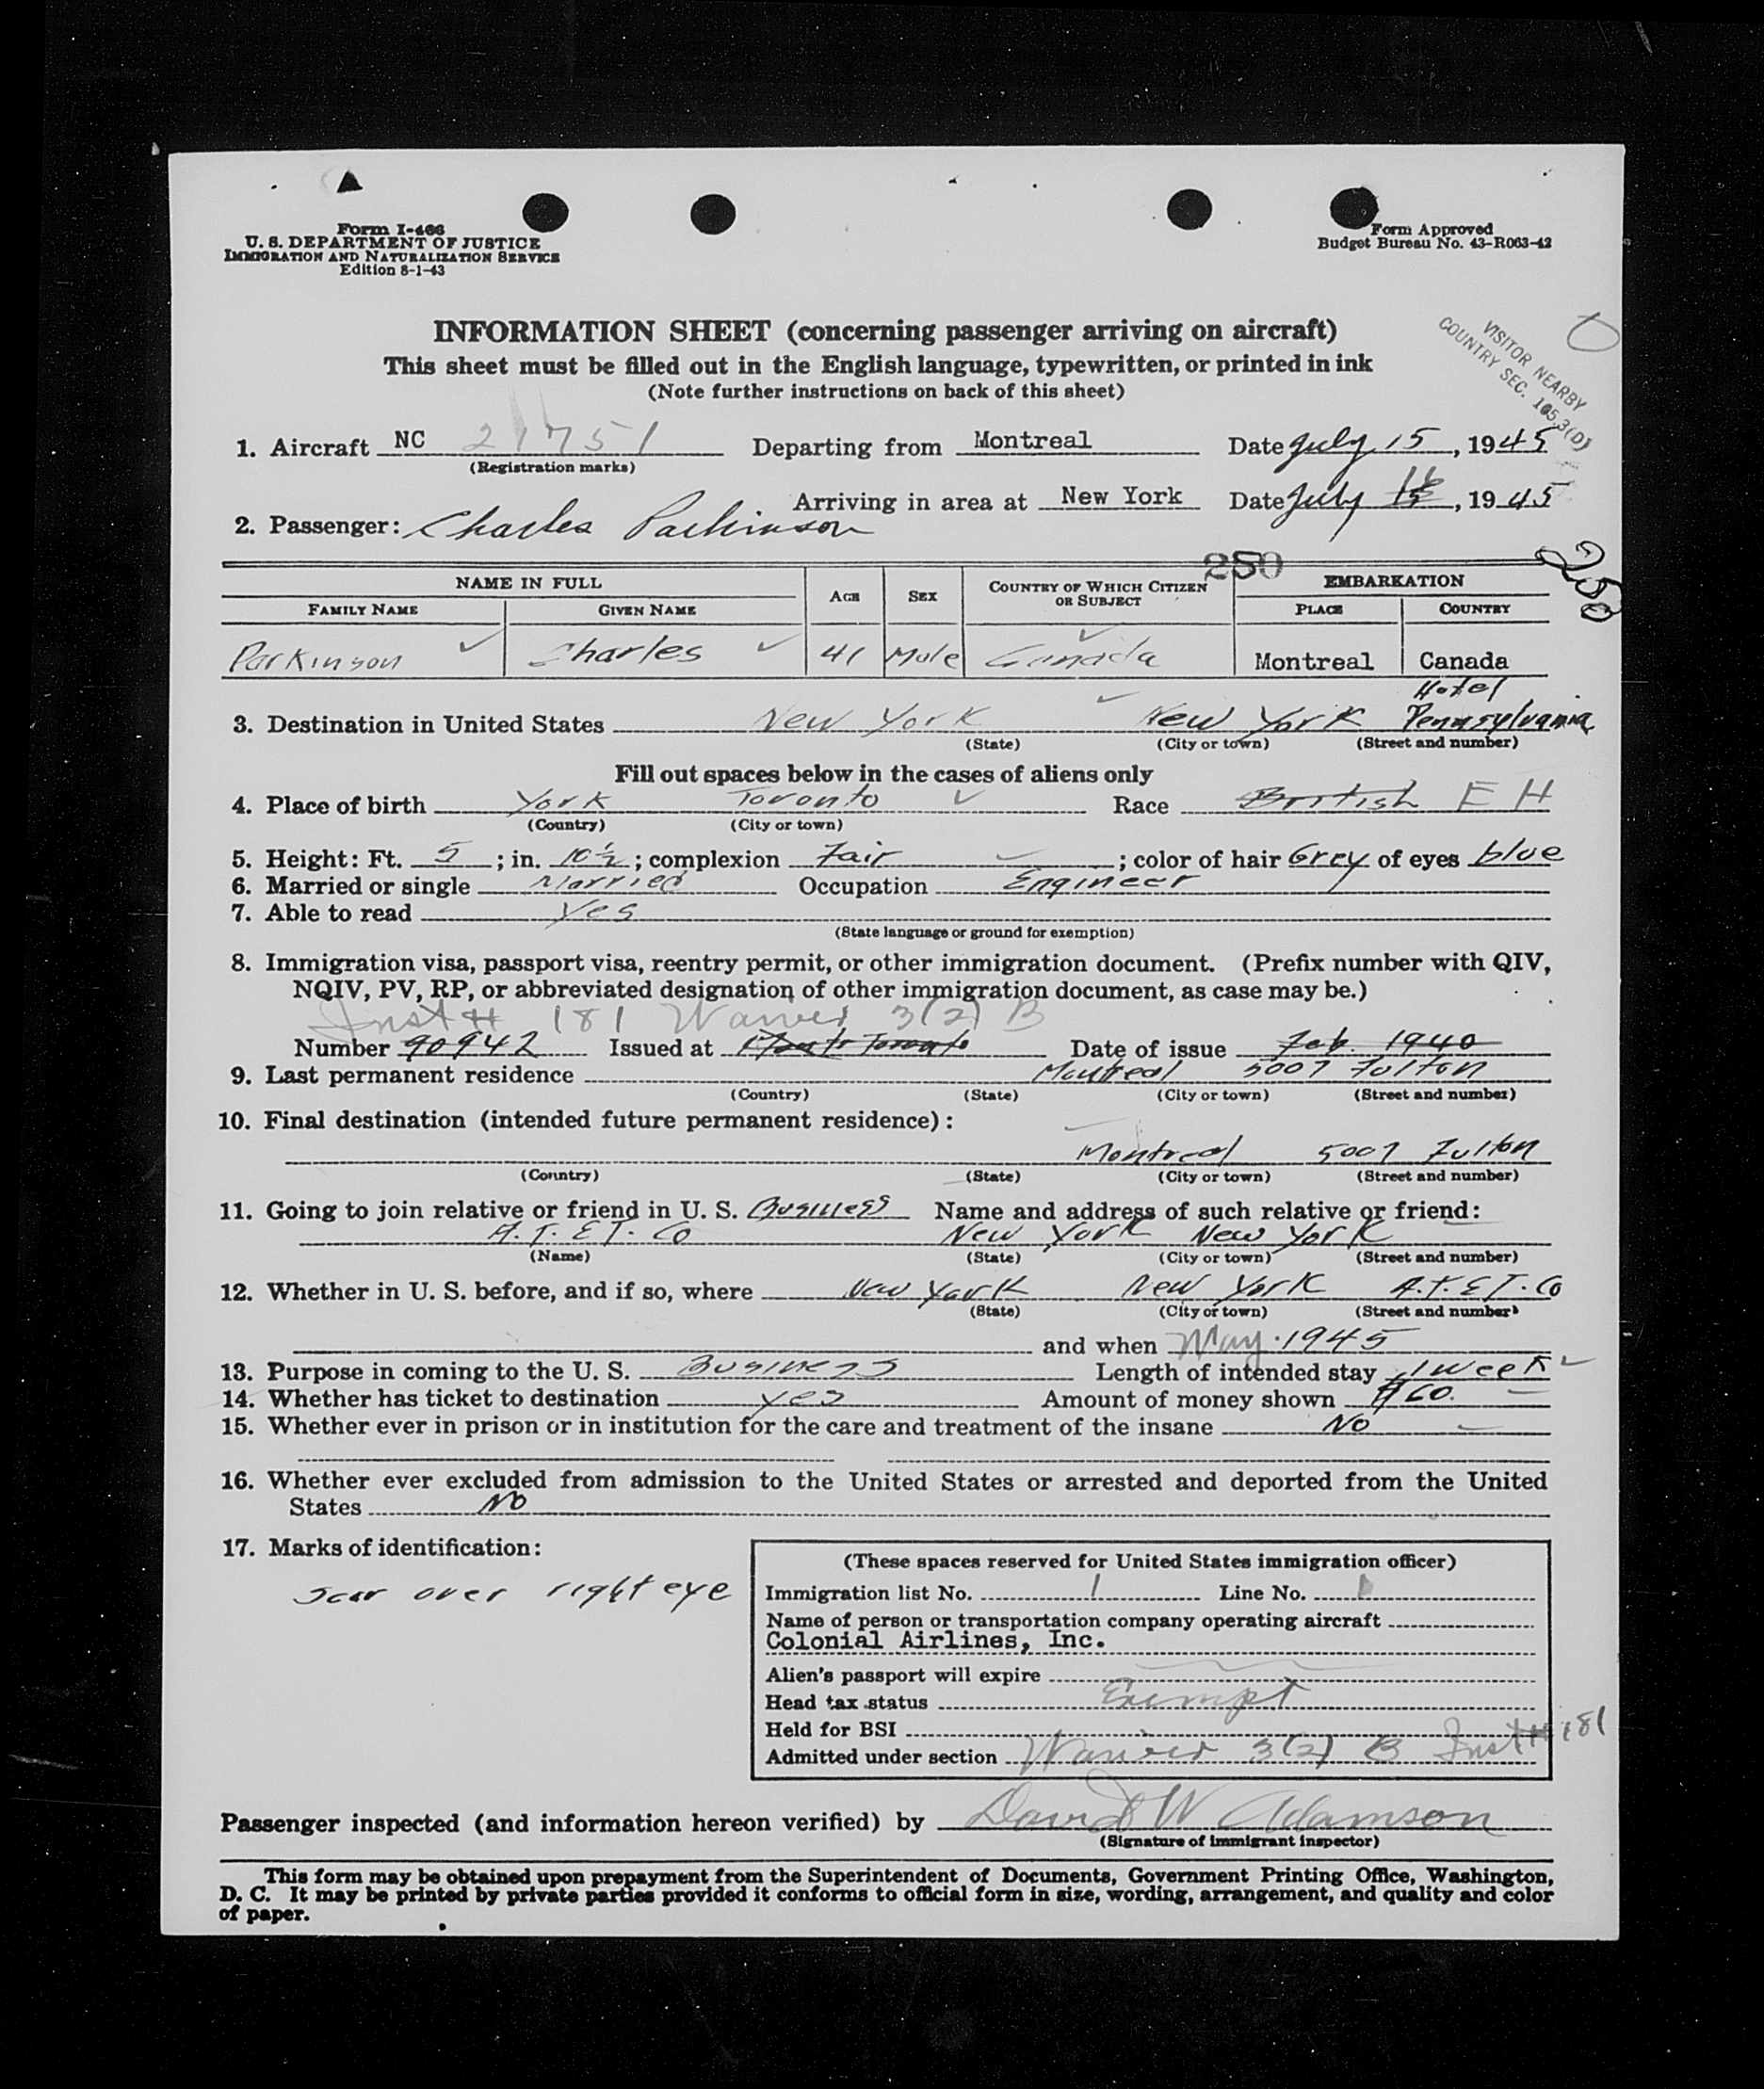 Form I-466
U. S. DEPARTMENT OF JUSTICE
IMMIGRATION AND NATURALIZATION SERVICE
Edition 8-1-43
Form Approved
Budget Bureau No. 43-R063-42
INFORMATION SHEET (concerning passenger arriving on aircraft)
This sheet must be filled out in the English language, typewritten, or printed in ink
(Note further instructions on back of this sheet)
VISITOR NEARBY
COUNTRY SEC. 165.3(D)
1. Aircraft NC 21751 Departing from Montreal Date July 15, 1945
(Registration marks)
Arriving in area at New York Date July, 1945
2. Passenger: Charles Parkinson
250
250
NAME IN FULL AGE SEX COUNTRY OF WHICH CITIZEN OR SUBJECT EMBARKATION
FAMILY NAME GIVEN NAME PLACE COUNTRY
Parkinson Charles 41 Male Canada Montreal Canada
Hotel
3. Destination in United States New York New York Pennsylvania
(State) (City or town) (Street and number)
Fill out spaces below in the cases of aliens only
4. Place of birth York Toronto Race British E H
(Country) (City or town)
5. Height: Ft. 5; in. 10½; complexion Fair; color of hair Grey of eyes blue
6. Married or single Married Occupation Engineer
7. Able to read Yes
(State language or ground for exemption)
8. Immigration visa, passport visa, reentry permit, or other immigration document. (Prefix number with QIV,
NQIV, PV, RP, or abbreviated designation of other immigration document, as case may be.)
Inst # 181 Waiver 3(2) B
Number 90942 Issued at Toronto Date of issue Feb. 1940
9. Last permanent residence Montreal 5007 Fulton
(Country) (State) (City or town) (Street and number)
10. Final destination (intended future permanent residence):
Montreal 5007 Fulton
(Country) (State) (City or town) (Street and number)
11. Going to join relative or friend in U. S. Business Name and address of such relative or friend:
A. T. & T. Co New York New York
(Name) (State) (City or town) (Street and number)
12. Whether in U. S. before, and if so, where New York New York A.T. & T. Co
(State) (City or town) (Street and number)
and when May 1945
13. Purpose in coming to the U. S. Business Length of intended stay 1 week
14. Whether has ticket to destination yes Amount of money shown $60.
15. Whether ever in prison or in institution for the care and treatment of the insane No
16. Whether ever excluded from admission to the United States or arrested and deported from the United
States No
17. Marks of identification:
Scar over right eye
(These spaces reserved for United States immigration officer)
Immigration list No. 1 Line No. 1
Name of person or transportation company operating aircraft
Colonial Airlines, Inc.
Alien's passport will expire
Head tax status Exempt
Held for BSI
Admitted under section Waiver 3(2) B Inst # 181
Passenger inspected (and information hereon verified) by David W Adamson
(Signature of immigrant inspector)
This form may be obtained upon prepayment from the Superintendent of Documents, Government Printing Office, Washington,
D. C. It may be printed by private parties provided it conforms to official form in size, wording, arrangement, and quality and color
of paper.